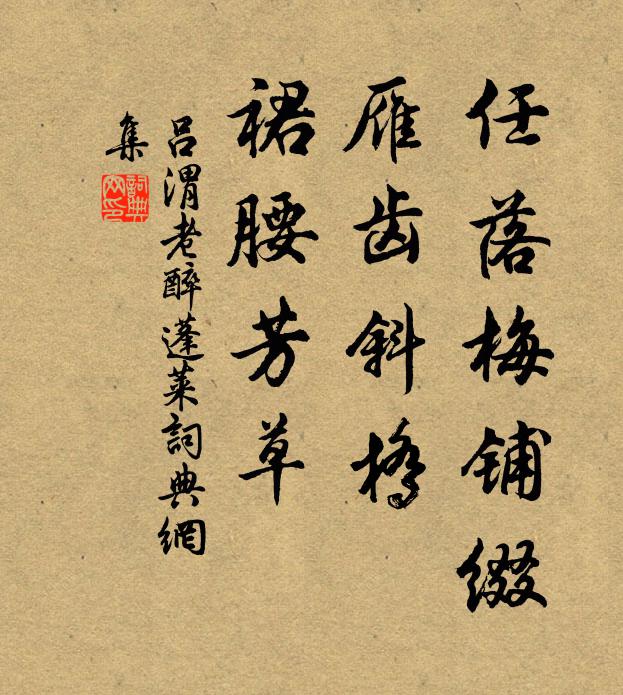 任落梅铺缀
雁齿斜橋
裙腰芳草
呂渭老醉蓬莱詞典網
集
詞典
网印